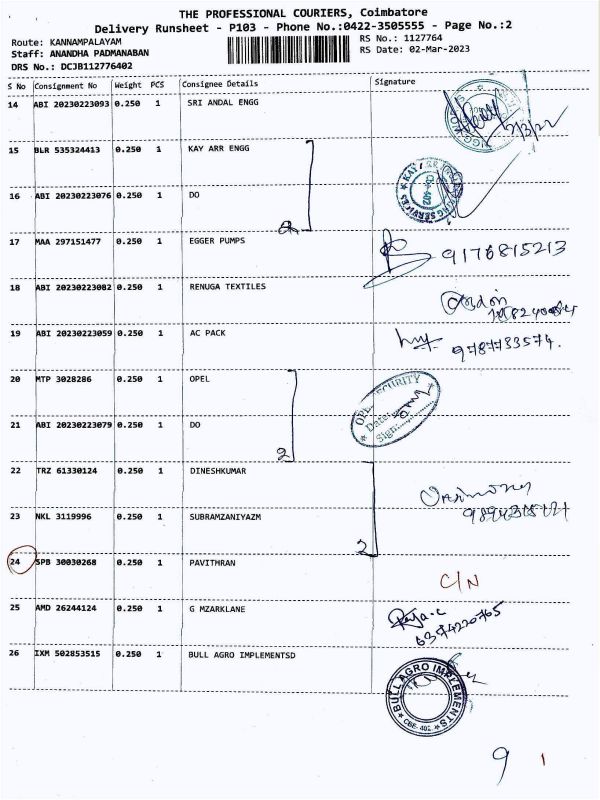 THE PROFESSIONAL COURIERS, Coimbatore
Delivery Runsheet - P103 - Phone No.:0422-3505555 - Page No.:2
Route: KANNAMPALAYAM
RS No.: 1127764
Staff: ANANDHA PADMANABAN
RS Date: 02-Mar-2023
DRS No.: DCJB112776402
S No Consignment No Weight PCS Consignee Details Signature
14 ABI 20230223093 0.250 1 SRI ANDAL ENGG
15 BLR 535324413 0.250 1 KAY ARR ENGG
16 ABI 20230223076 0.250 1 DO
2
17 MAA 297151477 0.250 1 EGGER PUMPS 9176815213
18 ABI 20230223082 0.250 1 RENUGA TEXTILES
19 ABI 20230223059 0.250 1 AC PACK
9787733574.
20 MTP 3028286 0.250 1 OPEL
SECURITY
Date:
Sign:
21 ABI 20230223079 0.250 1 DO
2
22 TRZ 61330124 0.250 1 DINESHKUMAR
23 NKL 3119996 0.250 1 SUBRAMZANIYAZM
2
24 SPB 30030268 0.250 1 PAVITHRAN C/N
25 AMD 26244124 0.250 1 G MZARKLANE
6374220765
26 IXM 502853515 0.250 1 BULL AGRO IMPLEMENTSD
BULL AGRO IMPLEMENTS
CBE-402
9 1